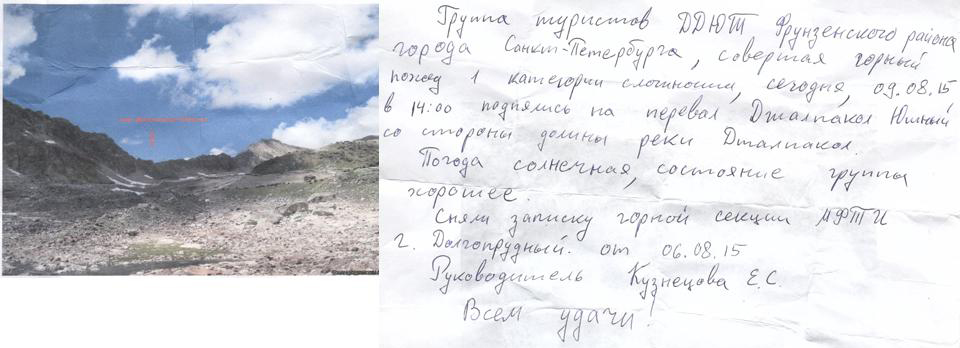 Группа туристов ДДЮТ Фрунзенского района
города Санкт-Петербурга, совершая горный
поход 1 категории сложности, сегодня, 09.08.15
в 14:00 поднялись на перевал Джалпакол Южный
со стороны долины реки Джалпакол.
Погода солнечная, состояние группы
хорошее.
Сняли записку горной секции МФТИ
г. Долгопрудный. от 06.08.15
Руководитель Кузнецова Е.С.
Всем удачи!